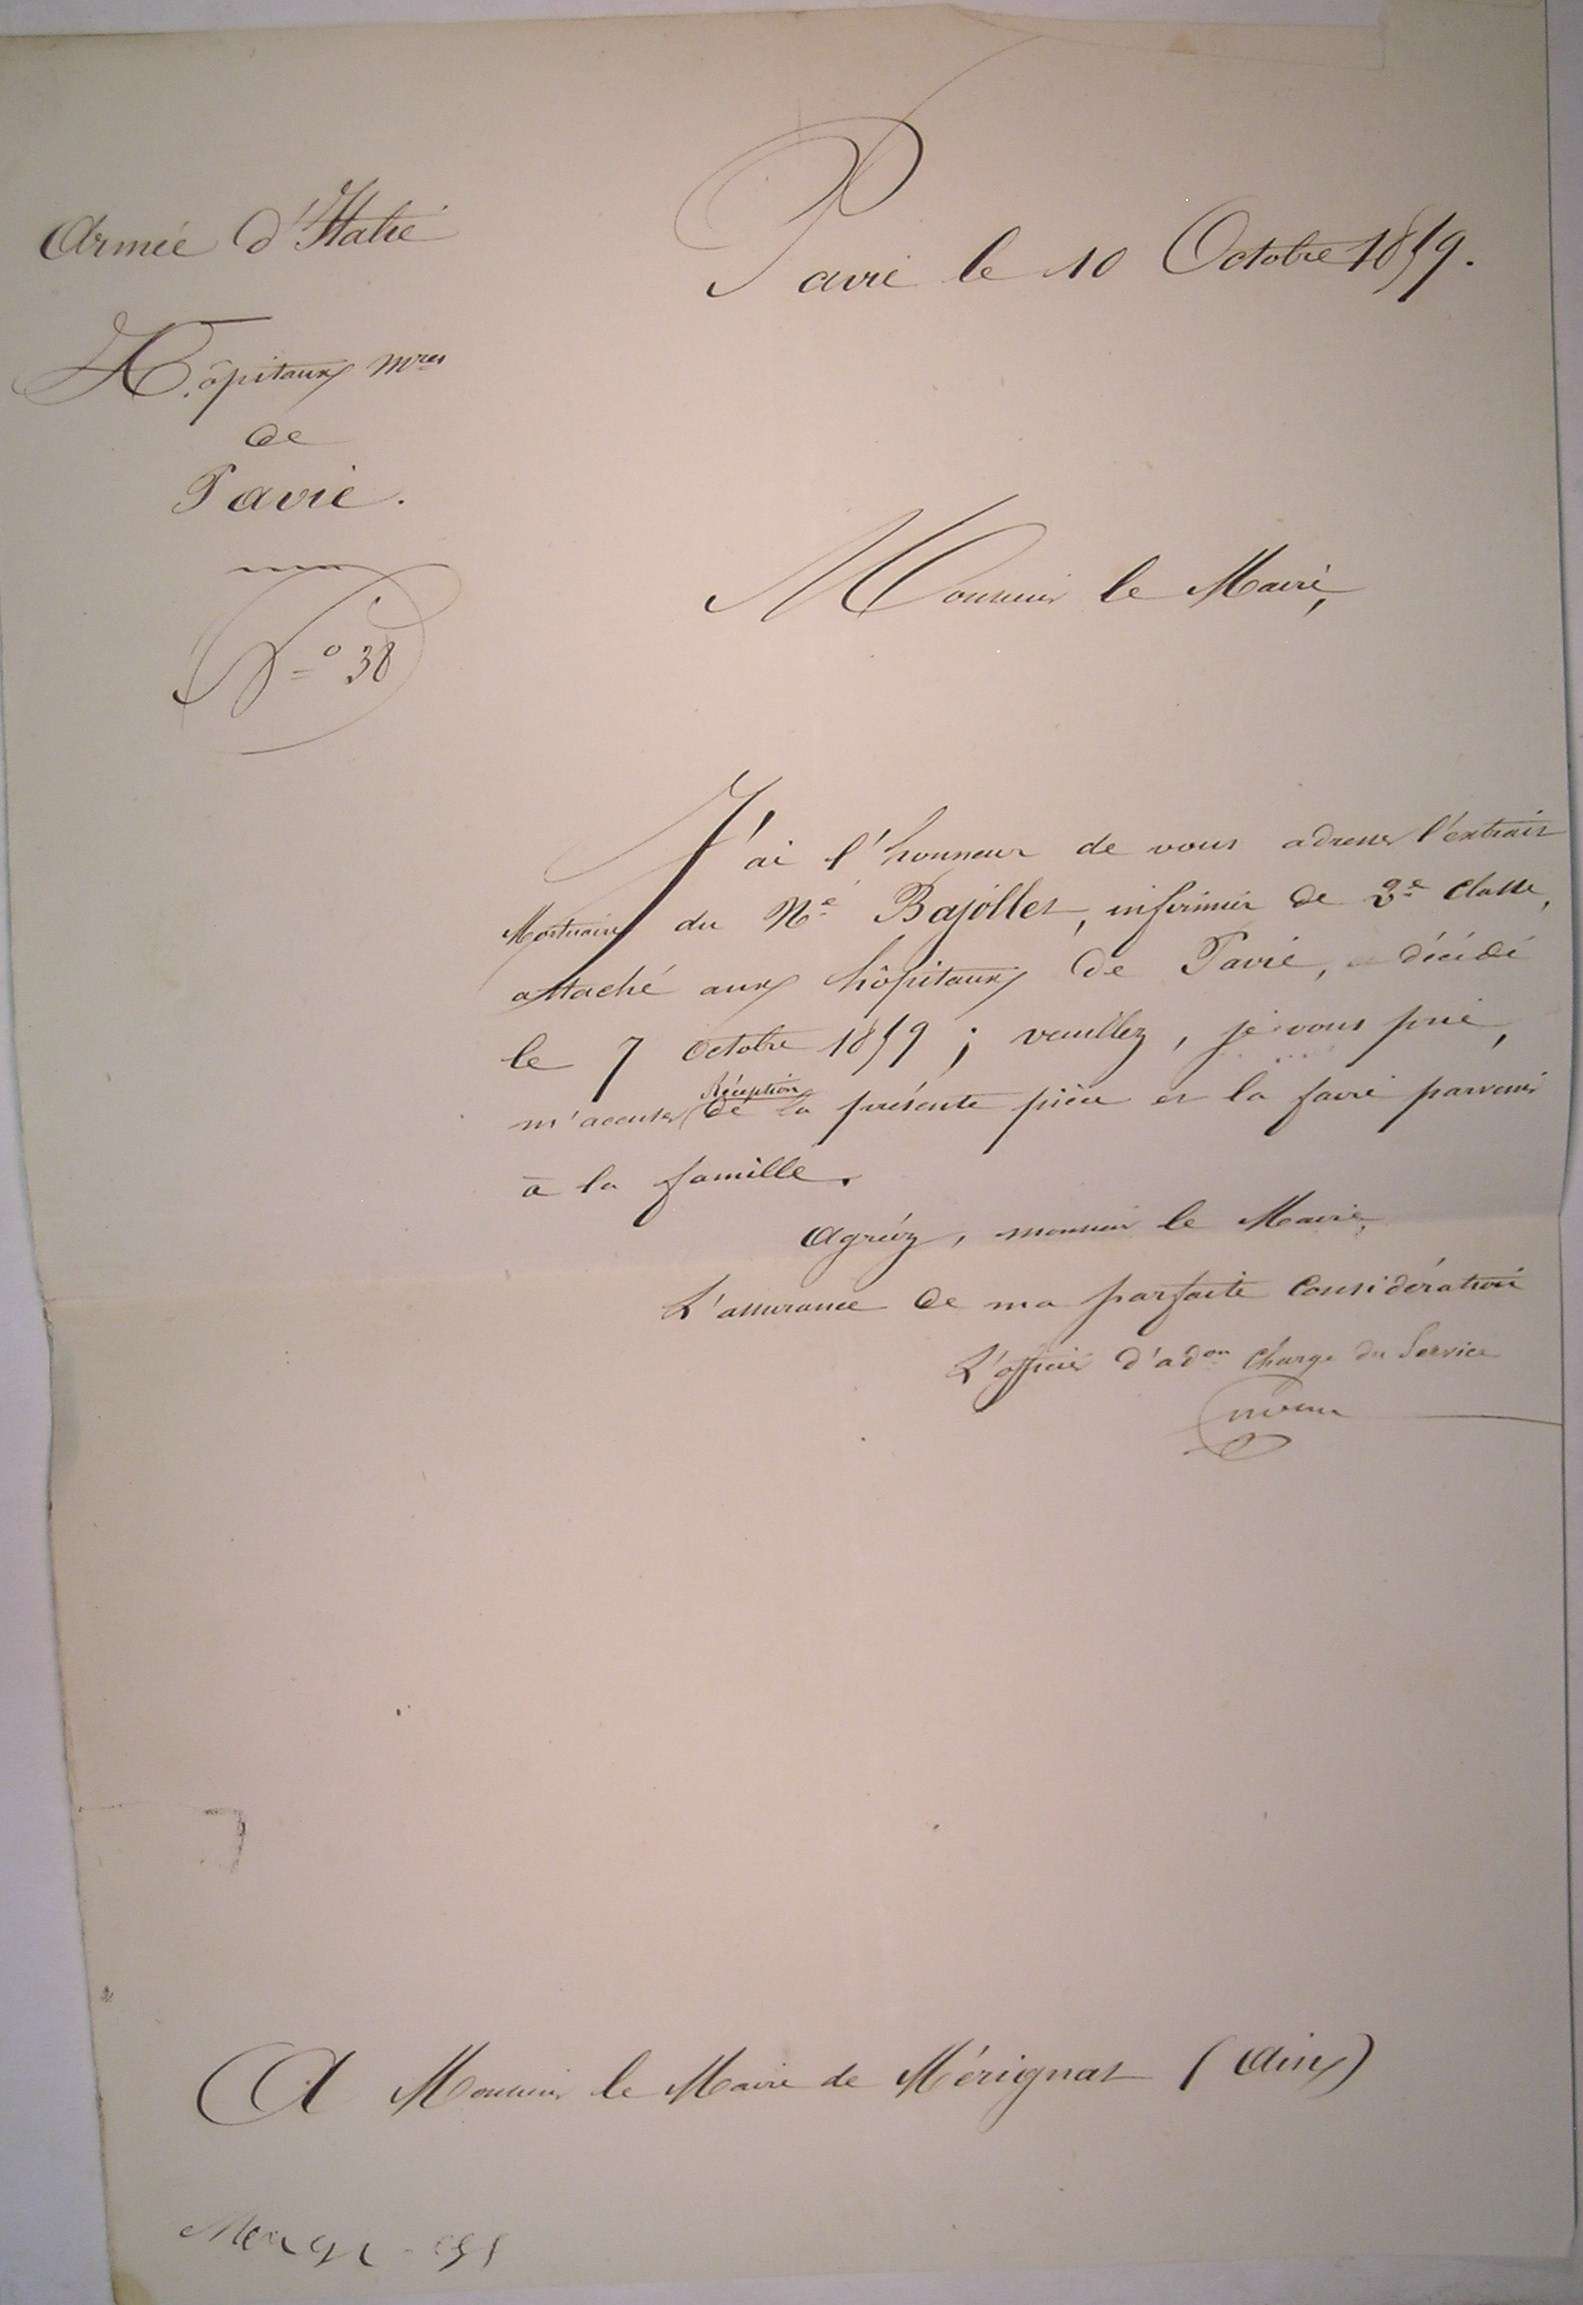 Armée d'Italie
Pavie le 10 Octobre 1859.
Hôpitaux Mres
de
Pavie.
No 38
Monsieur le Maire,
J'ai l'honneur de vous adresser l'extrait
Mortuaire du Né Bajollet, infirmier de 2e classe,
attaché aux hôpitaux de Pavie, décédé
le 7 octobre 1859 ; veuillez, je vous prie,
Réception
m'accuser de la présente pièce et la faire parvenir
à la famille.
Agréez, monsieur le Maire,
L'assurance de ma parfaite Considération
L'officier d'adon Chargé du Service
A Monsieur le Maire de Mérignat (Ain)